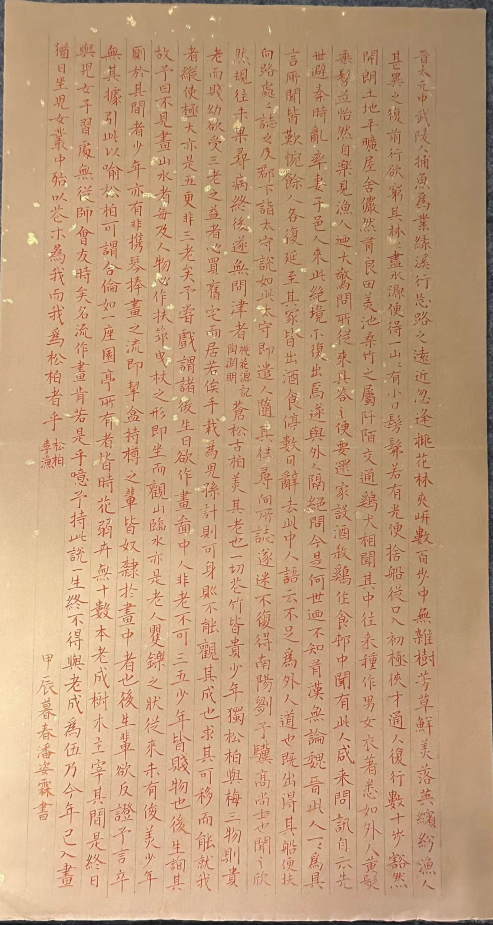 晉太元中武陵人捕魚為業緣溪行忘路之遠近忽逢桃花林夾岸數百步中無雜樹芳草鮮美落英繽紛漁人
甚異之復前行欲窮其林林盡水源便得一山山有小口髣髴若有光便捨船從口入初極狹才通人復行數十步豁然
開朗土地平曠屋舍儼然有良田美池桑竹之屬阡陌交通鷄犬相聞其中往来種作男女衣著悉如外人黃髮
垂髫並怡然自樂見漁人迺大驚問所從来具答之便要還家設酒殺鷄作食邨中聞有此人咸来問訊自云先
世避秦時亂率妻子邑人来此絕境不復出焉遂與外人隔絕問今是何世迺不知有漢無論魏晉此人一一為具
言所聞皆歎惋餘人各復延至其家皆出酒食停數日辭去此中人語云不足為外人道也既出得其船便扶
向路處處誌之及郡下詣太守說如此太守即遣人隨其往尋向所誌遂迷不復得南陽劉子驥高尚士也聞之欣
然規往未果尋病終後遂無問津者 桃花源記 陶淵明 蒼松古柏美其老也一切花竹皆貴少年獨松柏與梅三物則貴
老而賤幼欲受三老之益者必買舊宅而居若俟手栽為兒孫計則可身則不能觀其成也求其可移而能就我
者縱使極大亦是五更非三老矣予嘗戲謂諸後生曰欲作畫圖中人非老不可三五少年皆賤物也後生詢其
故予曰不見畫山水者每及人物必作扶筇曳杖之形即坐而觀山臨水亦是老人矍鑠之狀從来未有俊美少年
廁於其間者少年亦有非携琴捧畫之流即挈盒持樽之輩皆奴隸於畫中者也後生輩欲反證予言卒
無其據引此以喻松柏可謂合倫如一座園亭所有者皆時花弱卉無十數本老成樹木主宰其間是終日
與兒女子習處無從師會友時矣名流作畫肯若是乎噫予持此說一生終不得與老成為伍乃今年已入畫
猶日坐兒女叢中殆以花木為我而我為松柏者乎 松柏 李漁
甲辰暮春潘姿霖書